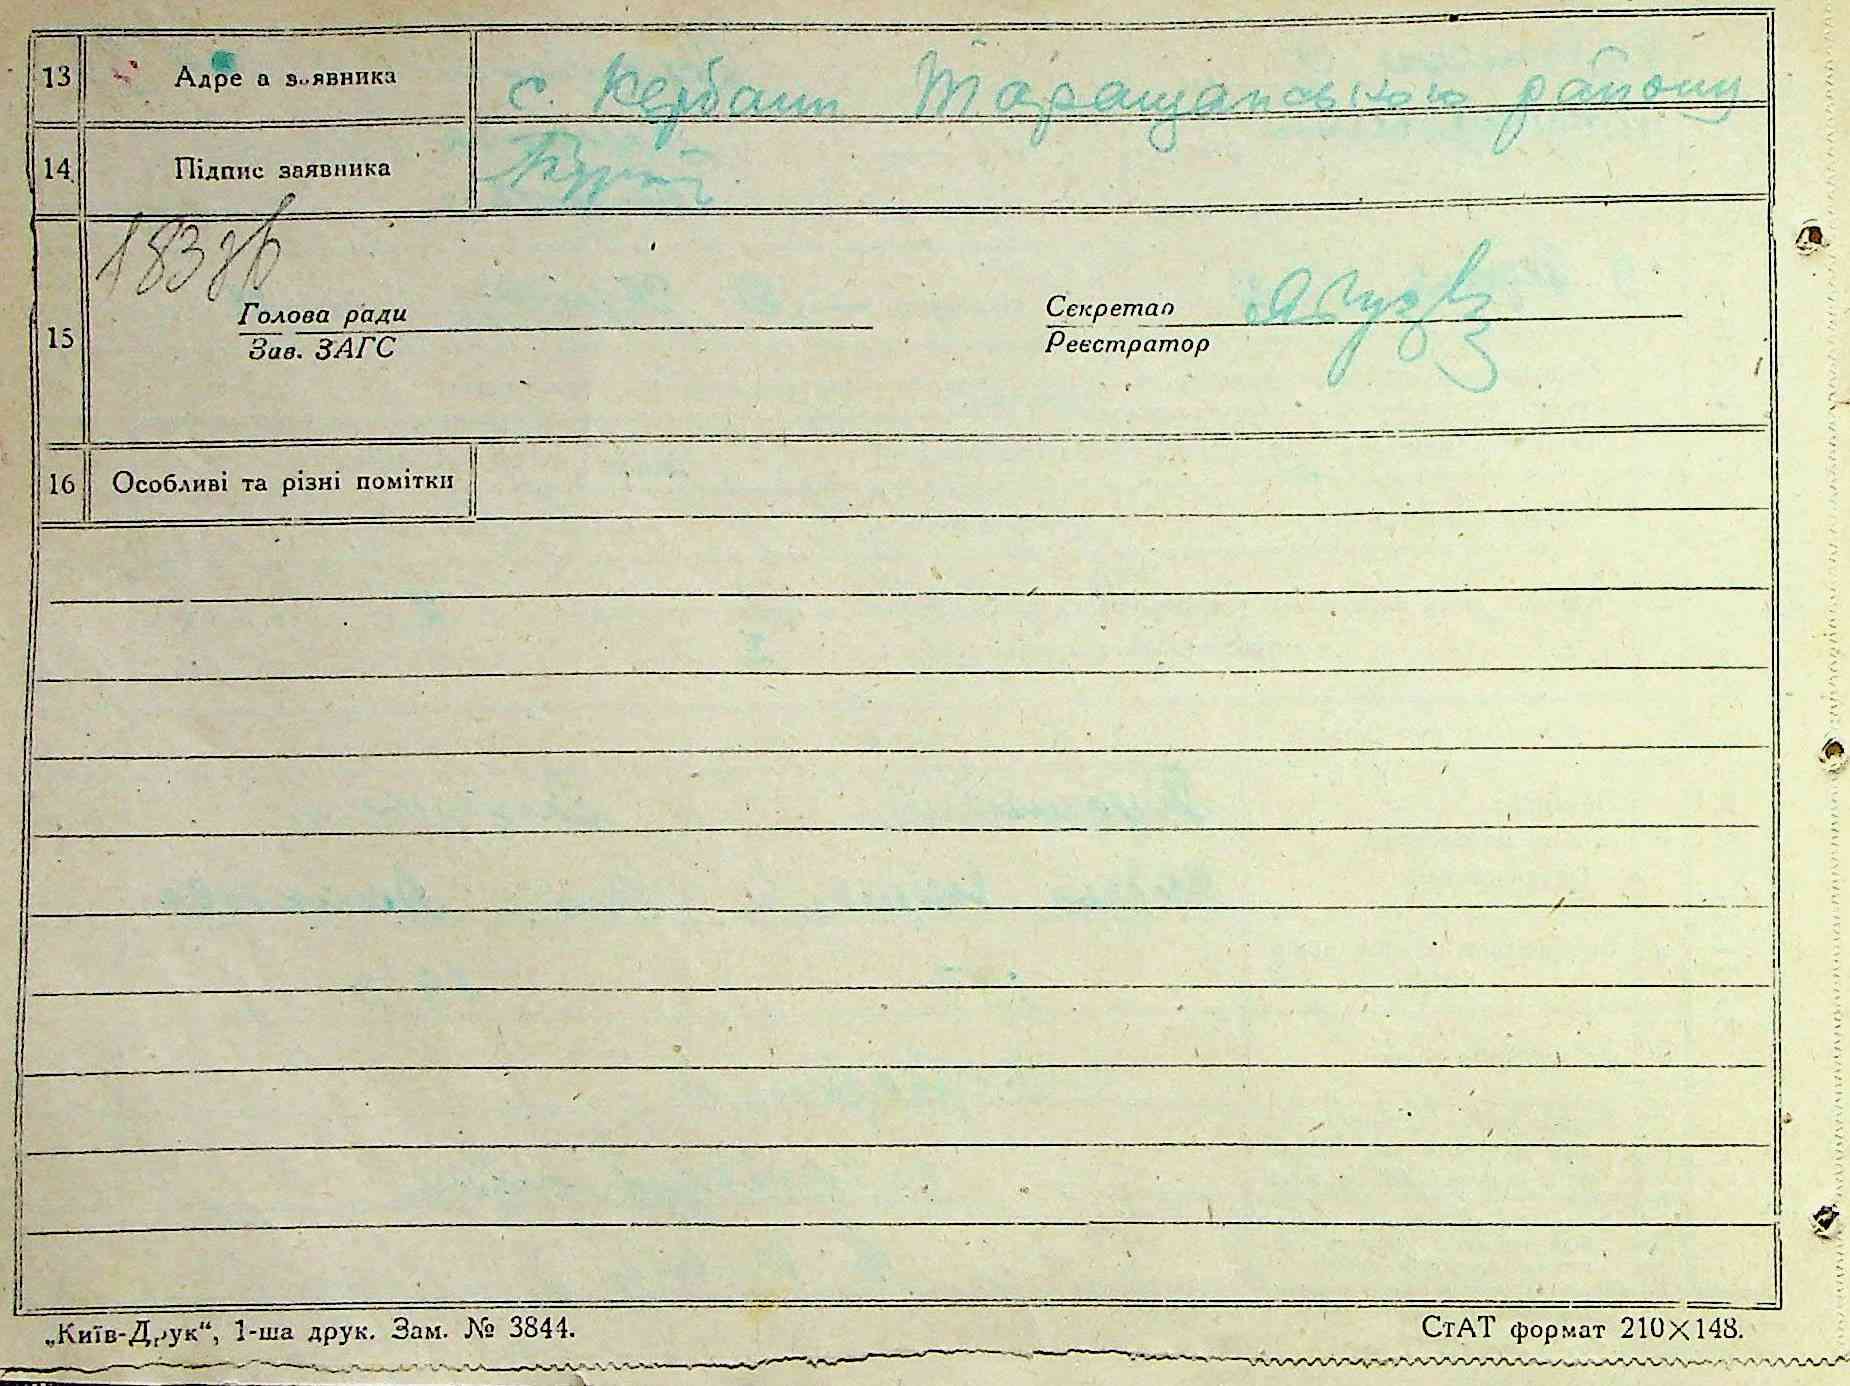 13 Адре а заявника с. Кербаш Таращанського району
14 Підпис заявника
183
Голова ради Секретар
15
Зав. ЗАГС Реєстратор
16 Особливі та різні помітки
„Київ-Друк“, 1-ша друк. Зам. № 3844. СтАТ формат 210×148.